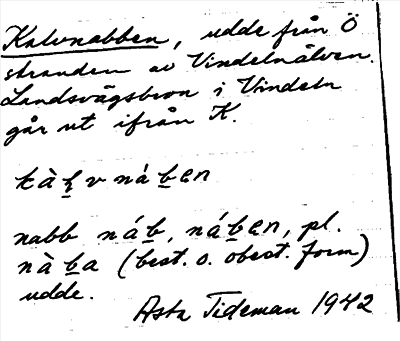 Kalvnabben, udde från Ö
stranden av Vindelnälven.
Landsvägsbron i Vindeln
går ut ifrån K.
kàḻv náb̲en
nabb náb̲, náb̲en, pl.
nàb̲a (best. o. obest. form)
udde.
Asta Tideman 1942